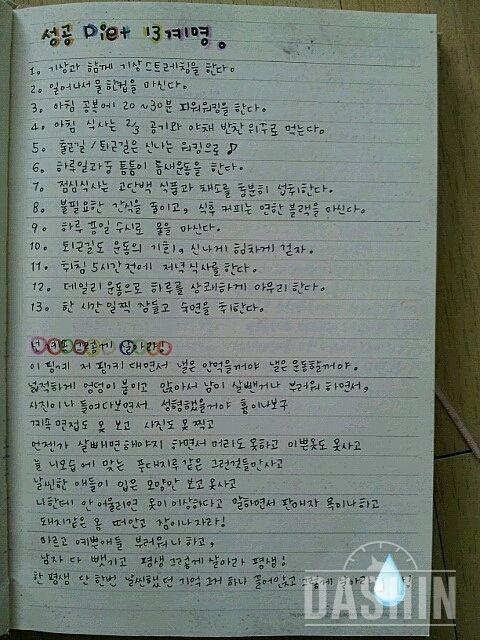 성공 Diet 13계명.
1. 기상과 함께 기상스트레칭을 한다.
2. 일어나서 물 한컵을 마신다.
3. 아침 공복에 20~30분 파워워킹을 한다.
4. 아침 식사는 2/3 공기와 야채 반찬 위주로 먹는다.
5. 출근길 / 퇴근길은 신나는 워킹으로 ♪
6. 하루일과중 틈틈이 틈새운동을 한다.
7. 점심식사는 고단백 식품과 채소를 충분히 섭취한다.
8. 불필요한 간식을 줄이고, 식후 커피는 연한 블랙을 마신다.
9. 하루 종일 수시로 물을 마신다.
10. 퇴근길도 운동의 기회. 신나게 힘차게 걷자.
11. 취침 5시간 전에 저녁 식사를 한다.
12. 데일리 운동으로 하루를 상쾌하게 마무리 한다.
13. 한 시간 일찍 잠들고 숙면을 취한다.
그렇게 살아라!
이 핑계 저 핑계 대면서 낼은 안먹을꺼야 낼은 운동할꺼야.
넓적하게 엉덩이 붙이고 앉아서 남이 살빼거나 부러워 하면서,
사진이나 들여다보면서 성형했을거야 흠이나보구
끼니 면접도 못 보고 사진도 못 찍고
언젠가 살빼면 해야지 하면서 머리도 못하고 이쁜옷도 못사고
늘 니모습에 맞는 푸대자루 같은 그런것들만사고
날씬한 애들이 입은 모양만 보고 옷사고
나한테 안 어울리면 옷이 이상하다고 말하면서 판매자 욕이나하고
돼지같은 몸 떠안고 잠이나 자라!
마르고 예쁜애들 부러워나 하고,
남자 다 뺏기고 평생 그렇게 살아라 평생!
한 평생 단 한번 날씬했던 기억 그거 하나 끌어안고 그렇게 살아라
DASHIN